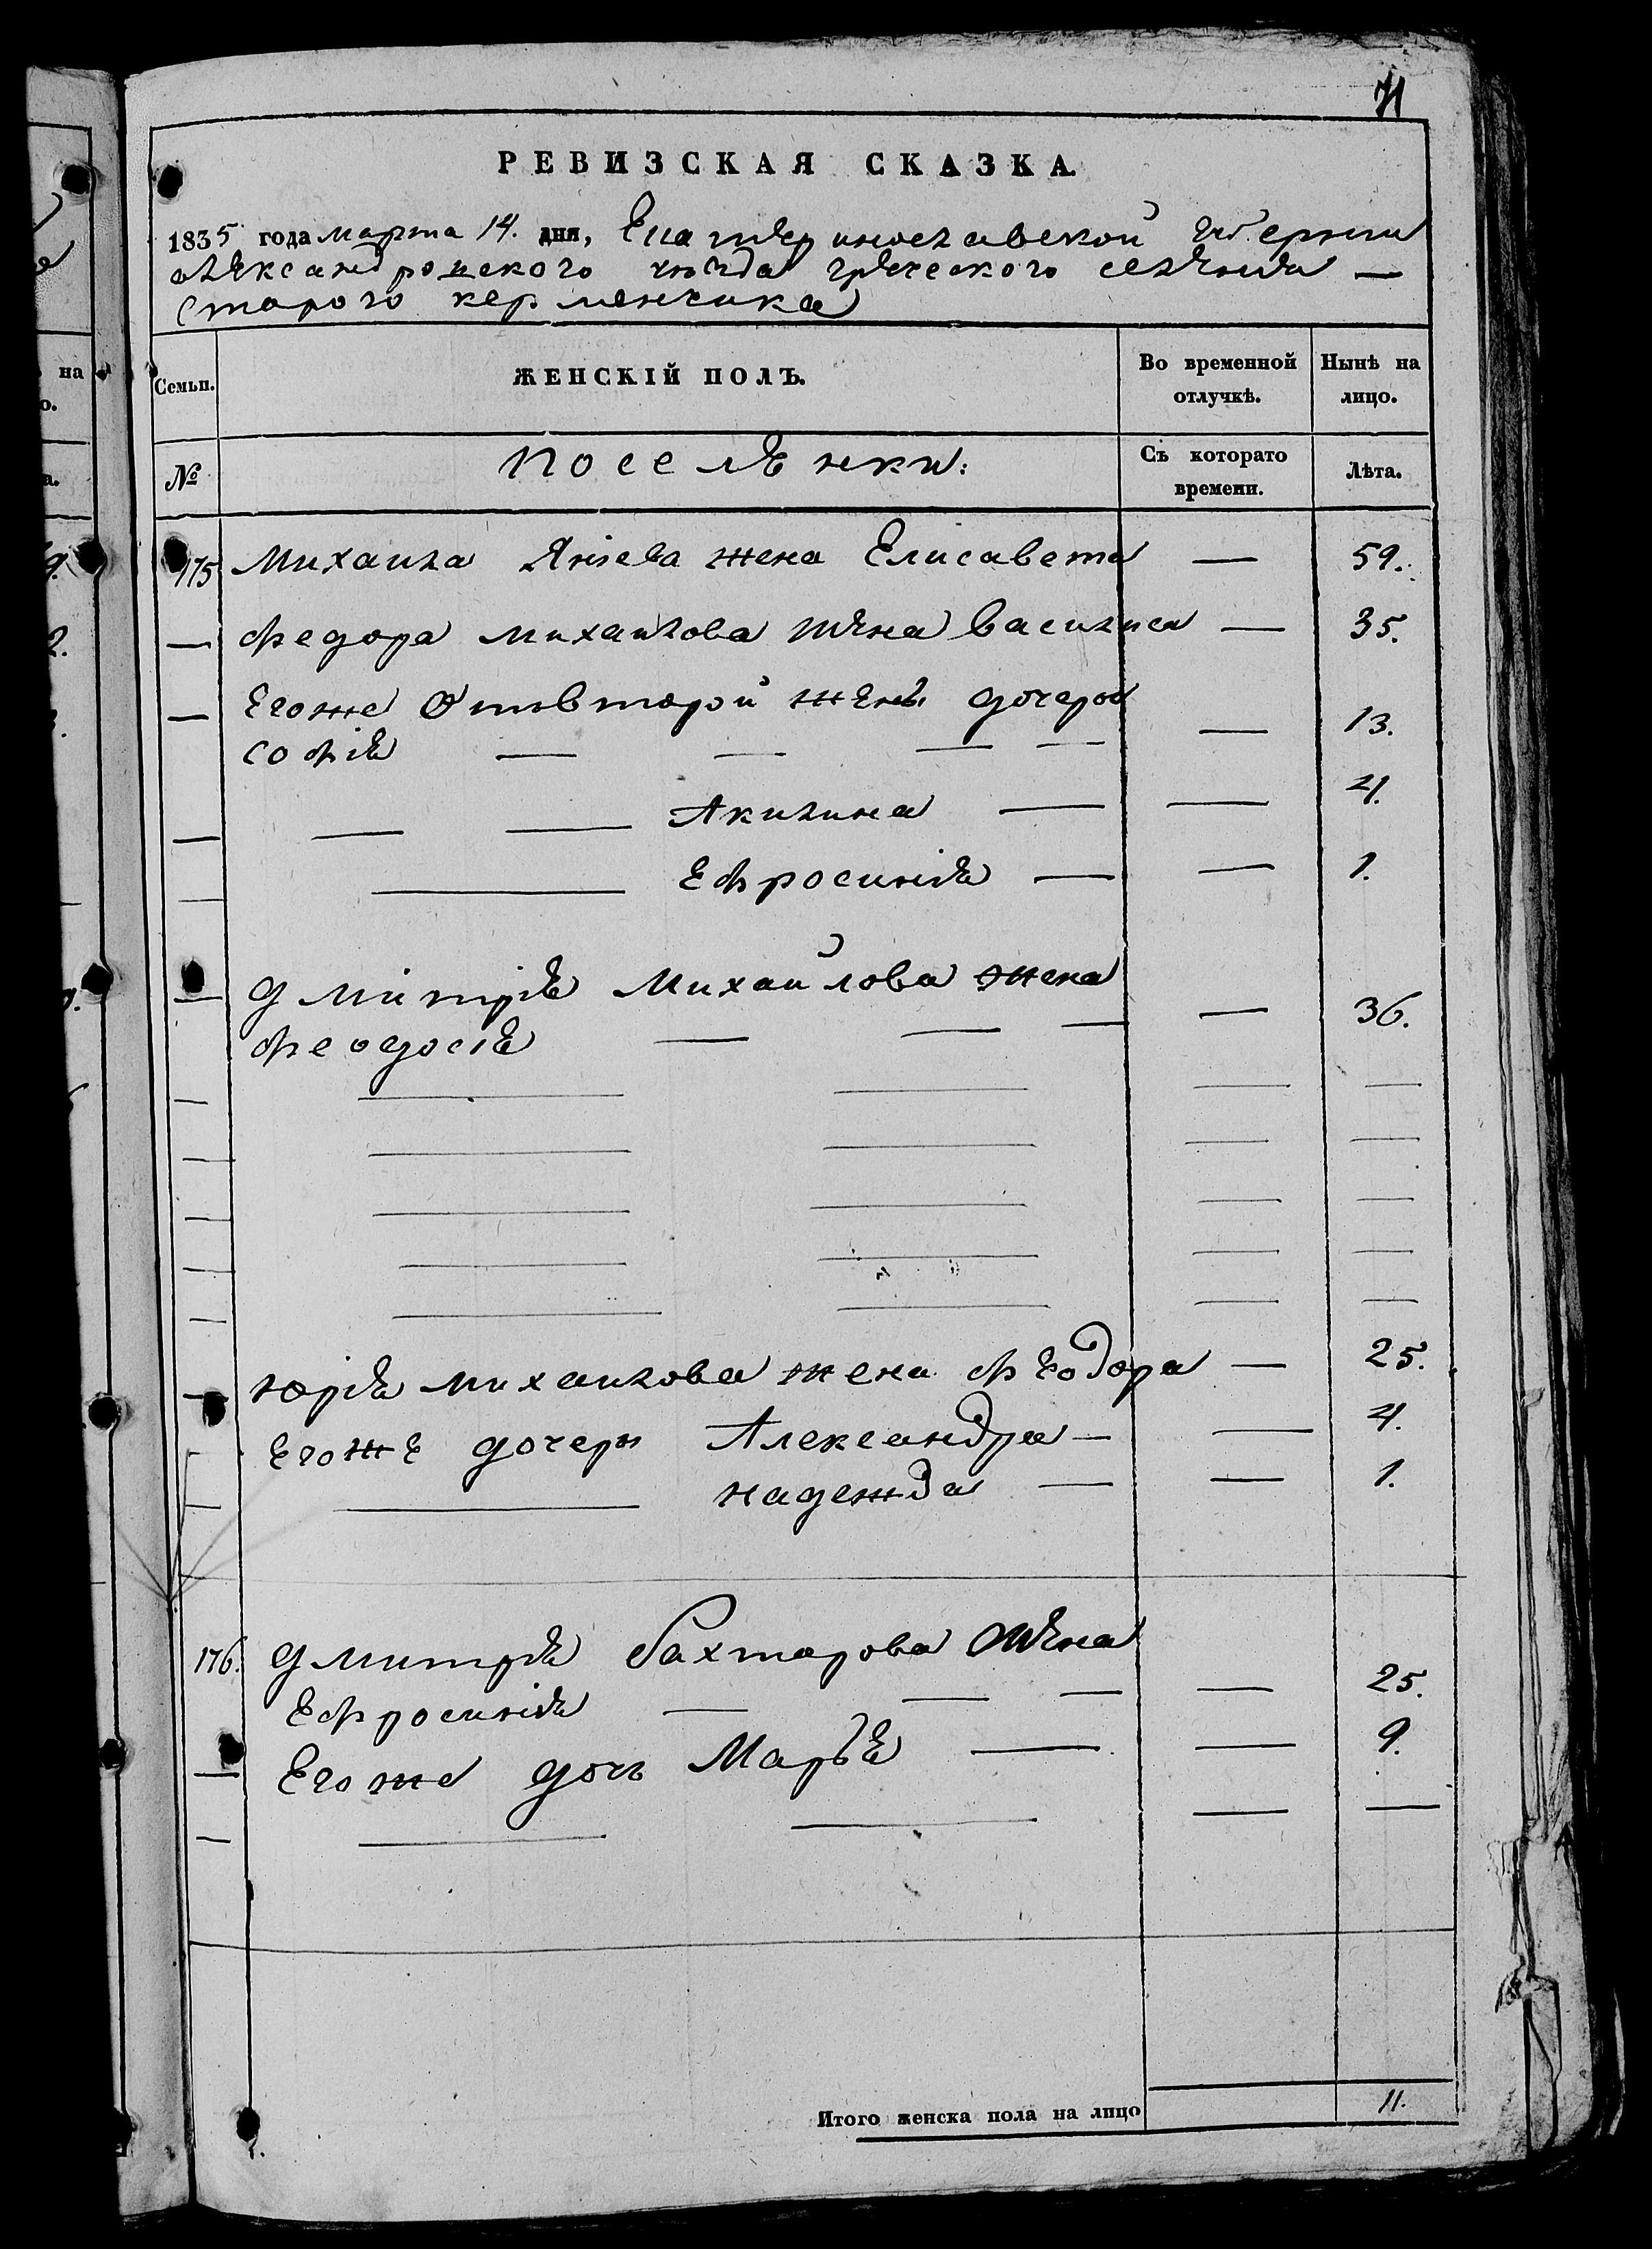 71
РЕВИЗСКАЯ СКАЗКА.
1835 года марта 14. дня, Екатеринославской губернии
Александровского уезда греческого селения —
Старого керменчика
Семьи.
ЖЕНСКІЙ ПОЛЪ.
Во временной отлучкѣ.
Нынѣ на лицо.
№
поселѣнки:
Съ котораго времени.
Лѣта.
175 Михаила Янъева жена Елисавета — 59.
— Федора михаилова жена Василиса — 35.
— Егоже отвторой жены дочеры
Софія — — — — — 13.
— — — Акилина — — 4.
— — Ефросинія — — 1.
— дмитрія Михайлова жена
феодосія — — — — 36.
— юрія михаилова жена феодора — 25.
— егоже дочеры Александра — — 4.
— — надежда — — 1.
176. дмитрія бахтарова жена
Ефросинія — — — — 25.
— Егоже дочь Марья — — 9.
Итого женска пола на лицо 11.